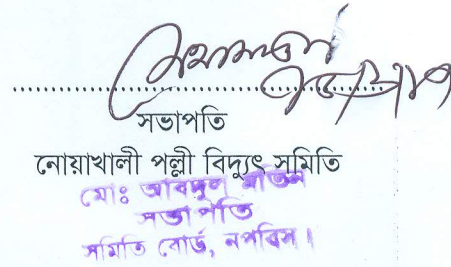 সভাপতি
নোয়াখালী পল্লী বিদ্যুৎ সমিতি
মোঃ আবদুল মতিন
সভাপতি
সমিতি বোর্ড, নপবিস।